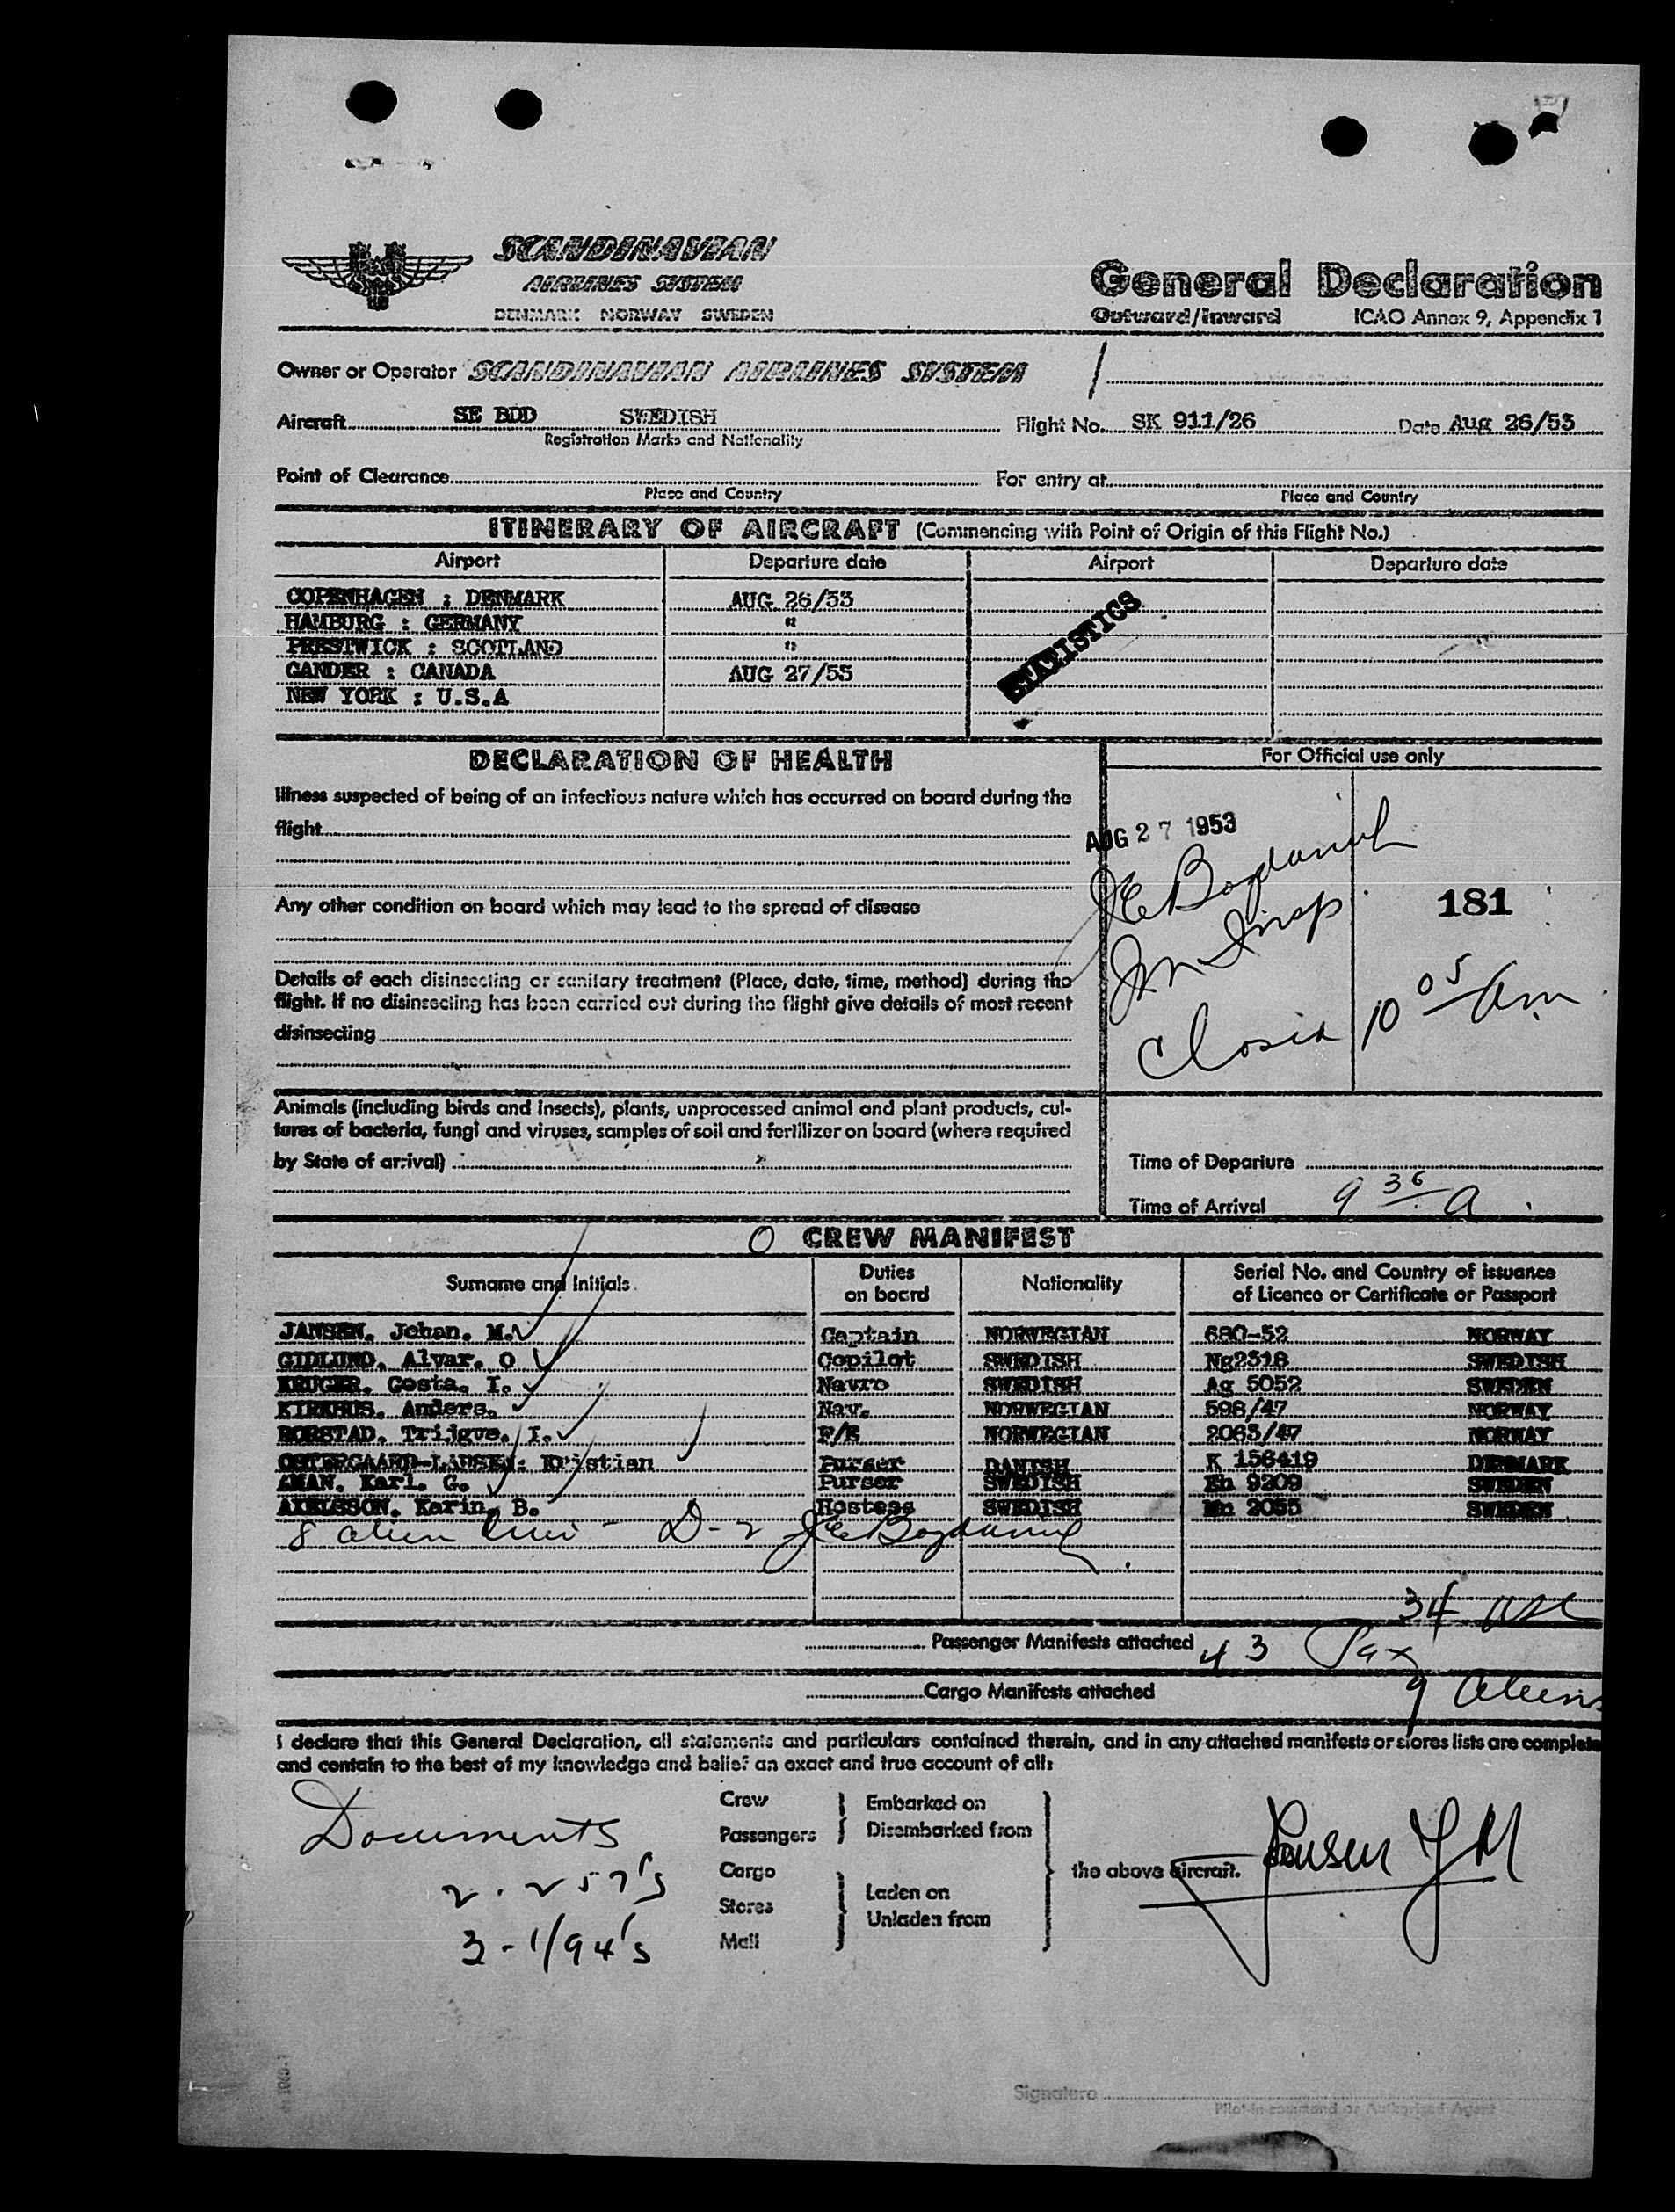 SCANDINAVIAN
AIRLINES SYSTEM
DENMARK NORWAY SWEDEN
General Declaration
Outward/Inward ICAO Annex 9, Appendix 1
Owner or Operator SCANDINAVIAN AIRLINES SYSTEM /
Aircraft SE BDD SWEDISH Flight No. SK 911/26 Date Aug 26/53
Registration Marks and Nationality
Point of Clearance For entry at
Place and Country Place and Country
ITINERARY OF AIRCRAFT (Commencing with Point of Origin of this Flight No.)
Airport Departure date Airport Departure date
COPENHAGEN : DENMARK AUG 26/53
HAMBURG : GERMANY "
PRESTWICK : SCOTLAND "
GANDER : CANADA AUG 27/53
NEW YORK : U.S.A
STATISTICS
DECLARATION OF HEALTH
For Official use only
Illness suspected of being of an infectious nature which has occurred on board during the
flight
Any other condition on board which may lead to the spread of disease
Details of each disinsecting or sanitary treatment (Place, date, time, method) during the
flight. If no disinsecting has been carried out during the flight give details of most recent
disinsecting
AUG 27 1953
181
Im Insp
Closed 10 05 am
Animals (including birds and insects), plants, unprocessed animal and plant products, cul-
tures of bacteria, fungi and viruses, samples of soil and fertilizer on board (where required
by State of arrival)
Time of Departure
Time of Arrival 9 36 a
CREW MANIFEST
Surname and Initials Duties on board Nationality Serial No. and Country of issuance of Licence or Certificate or Passport
JANSEN. Johan. M. Captain NORWEGIAN 680-52 NORWAY
GIDLUND. Alvar. O Copilot SWEDISH Ng2318 SWEDISH
KRUGER. Gosta. I. Navro SWEDISH Ag 5052 SWEDEN
KIRKHUS. Anders. Nav. NORWEGIAN 598/47 NORWAY
BORSTAD. Trijgve. I. F/E NORWEGIAN 2063/47 NORWAY
OSTERGAARD-LARSEN: Kristian Purser DANISH K 156419 DENMARK
AMAN. Karl. G. Purser SWEDISH Eh 9209 SWEDEN
AXELSSON. Karin. B. Hostess SWEDISH Mn 2055 SWEDEN
8 alien crew - D-2
34 USC
Passenger Manifests attached 43 Pax
9 Aliens
Cargo Manifests attached
I declare that this General Declaration, all statements and particulars contained therein, and in any attached manifests or stores lists are complete
and contain to the best of my knowledge and belief an exact and true account of all:
Documents
2 - 257's
3 - 1/94's
Crew
Passengers
Cargo
Stores
Mail
Embarked on
Disembarked from
Laden on
Unladen from
the above aircraft.
Jansen J M
Signature
Pilot-in-command or Authorised Agent